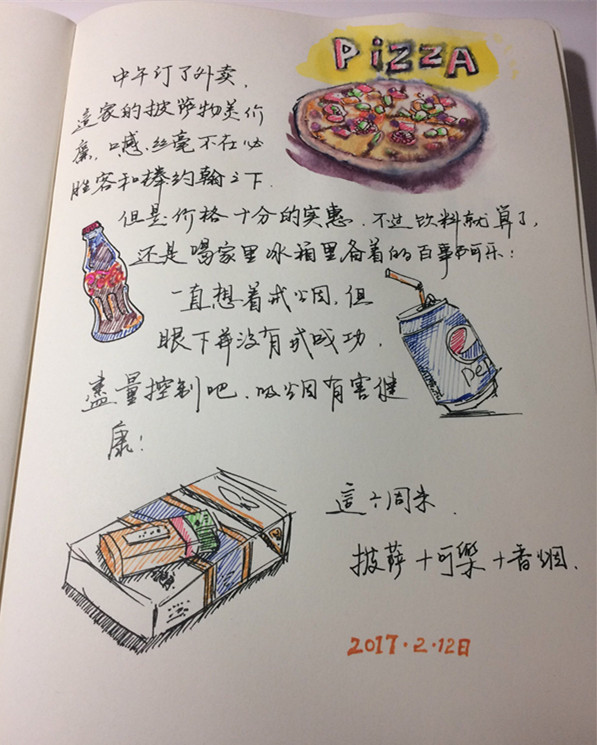 PiZZA
中午订了外卖，
這家的披萨物美价
廉，口感丝毫不在必
胜客和棒约翰之下.
但是价格十分的实惠. 不过饮料就算了,
还是喝家里冰箱里备着的百事可乐:
一直想着戒烟, 但
眼下并没有戒成功.
盡量控制吧. 吸烟有害健
康!
pep
這个周末.
披萨+可樂+香烟.
2017·2·12日